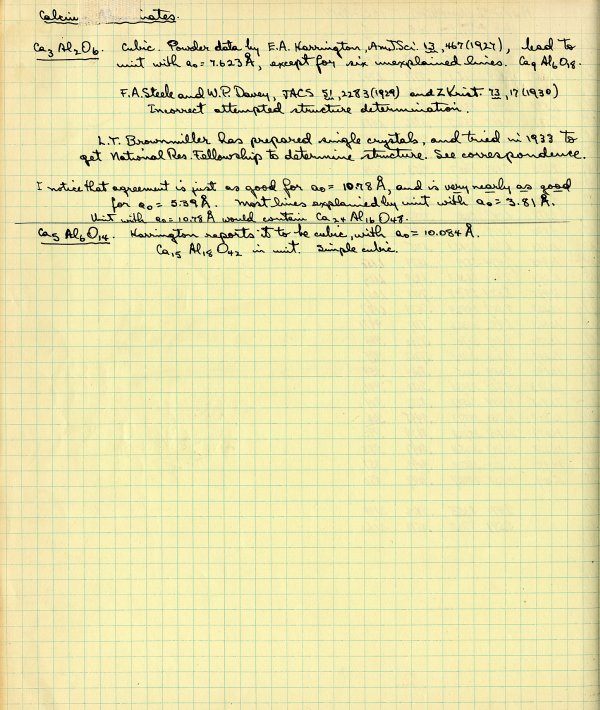 Calcium Aluminates.
Ca3 Al2O6. Cubic. Powder data by E.A. Harrington, Am J Sci. 13, 467 (1927), lead to
unit with a0 = 7.623 Å, except for six unexplained lines. Ca9 Al6 O18.
F.A. Steele and W.P. Davey, JACS 51, 2283 (1929) and Z Krist 73, 17 (1930)
Incorrect attempted structure determination.
L.T. Brownmiller has prepared single crystals, and tried in 1933 to
get National Res. Fellowship to determine structure. See correspondence.
I notice that agreement is just as good for a0 = 10.78 Å, and is very nearly as good
for a0 = 5.39 Å. Most lines explained by unit with a0 = 3.81 Å.
Unit with a0 = 10.78 Å would contain Ca24 Al16 O48.
Ca5 Al6 O14. Harrington reports it to be cubic, with a0 = 10.084 Å.
Ca15 Al18 O42 in unit. Simple cubic.